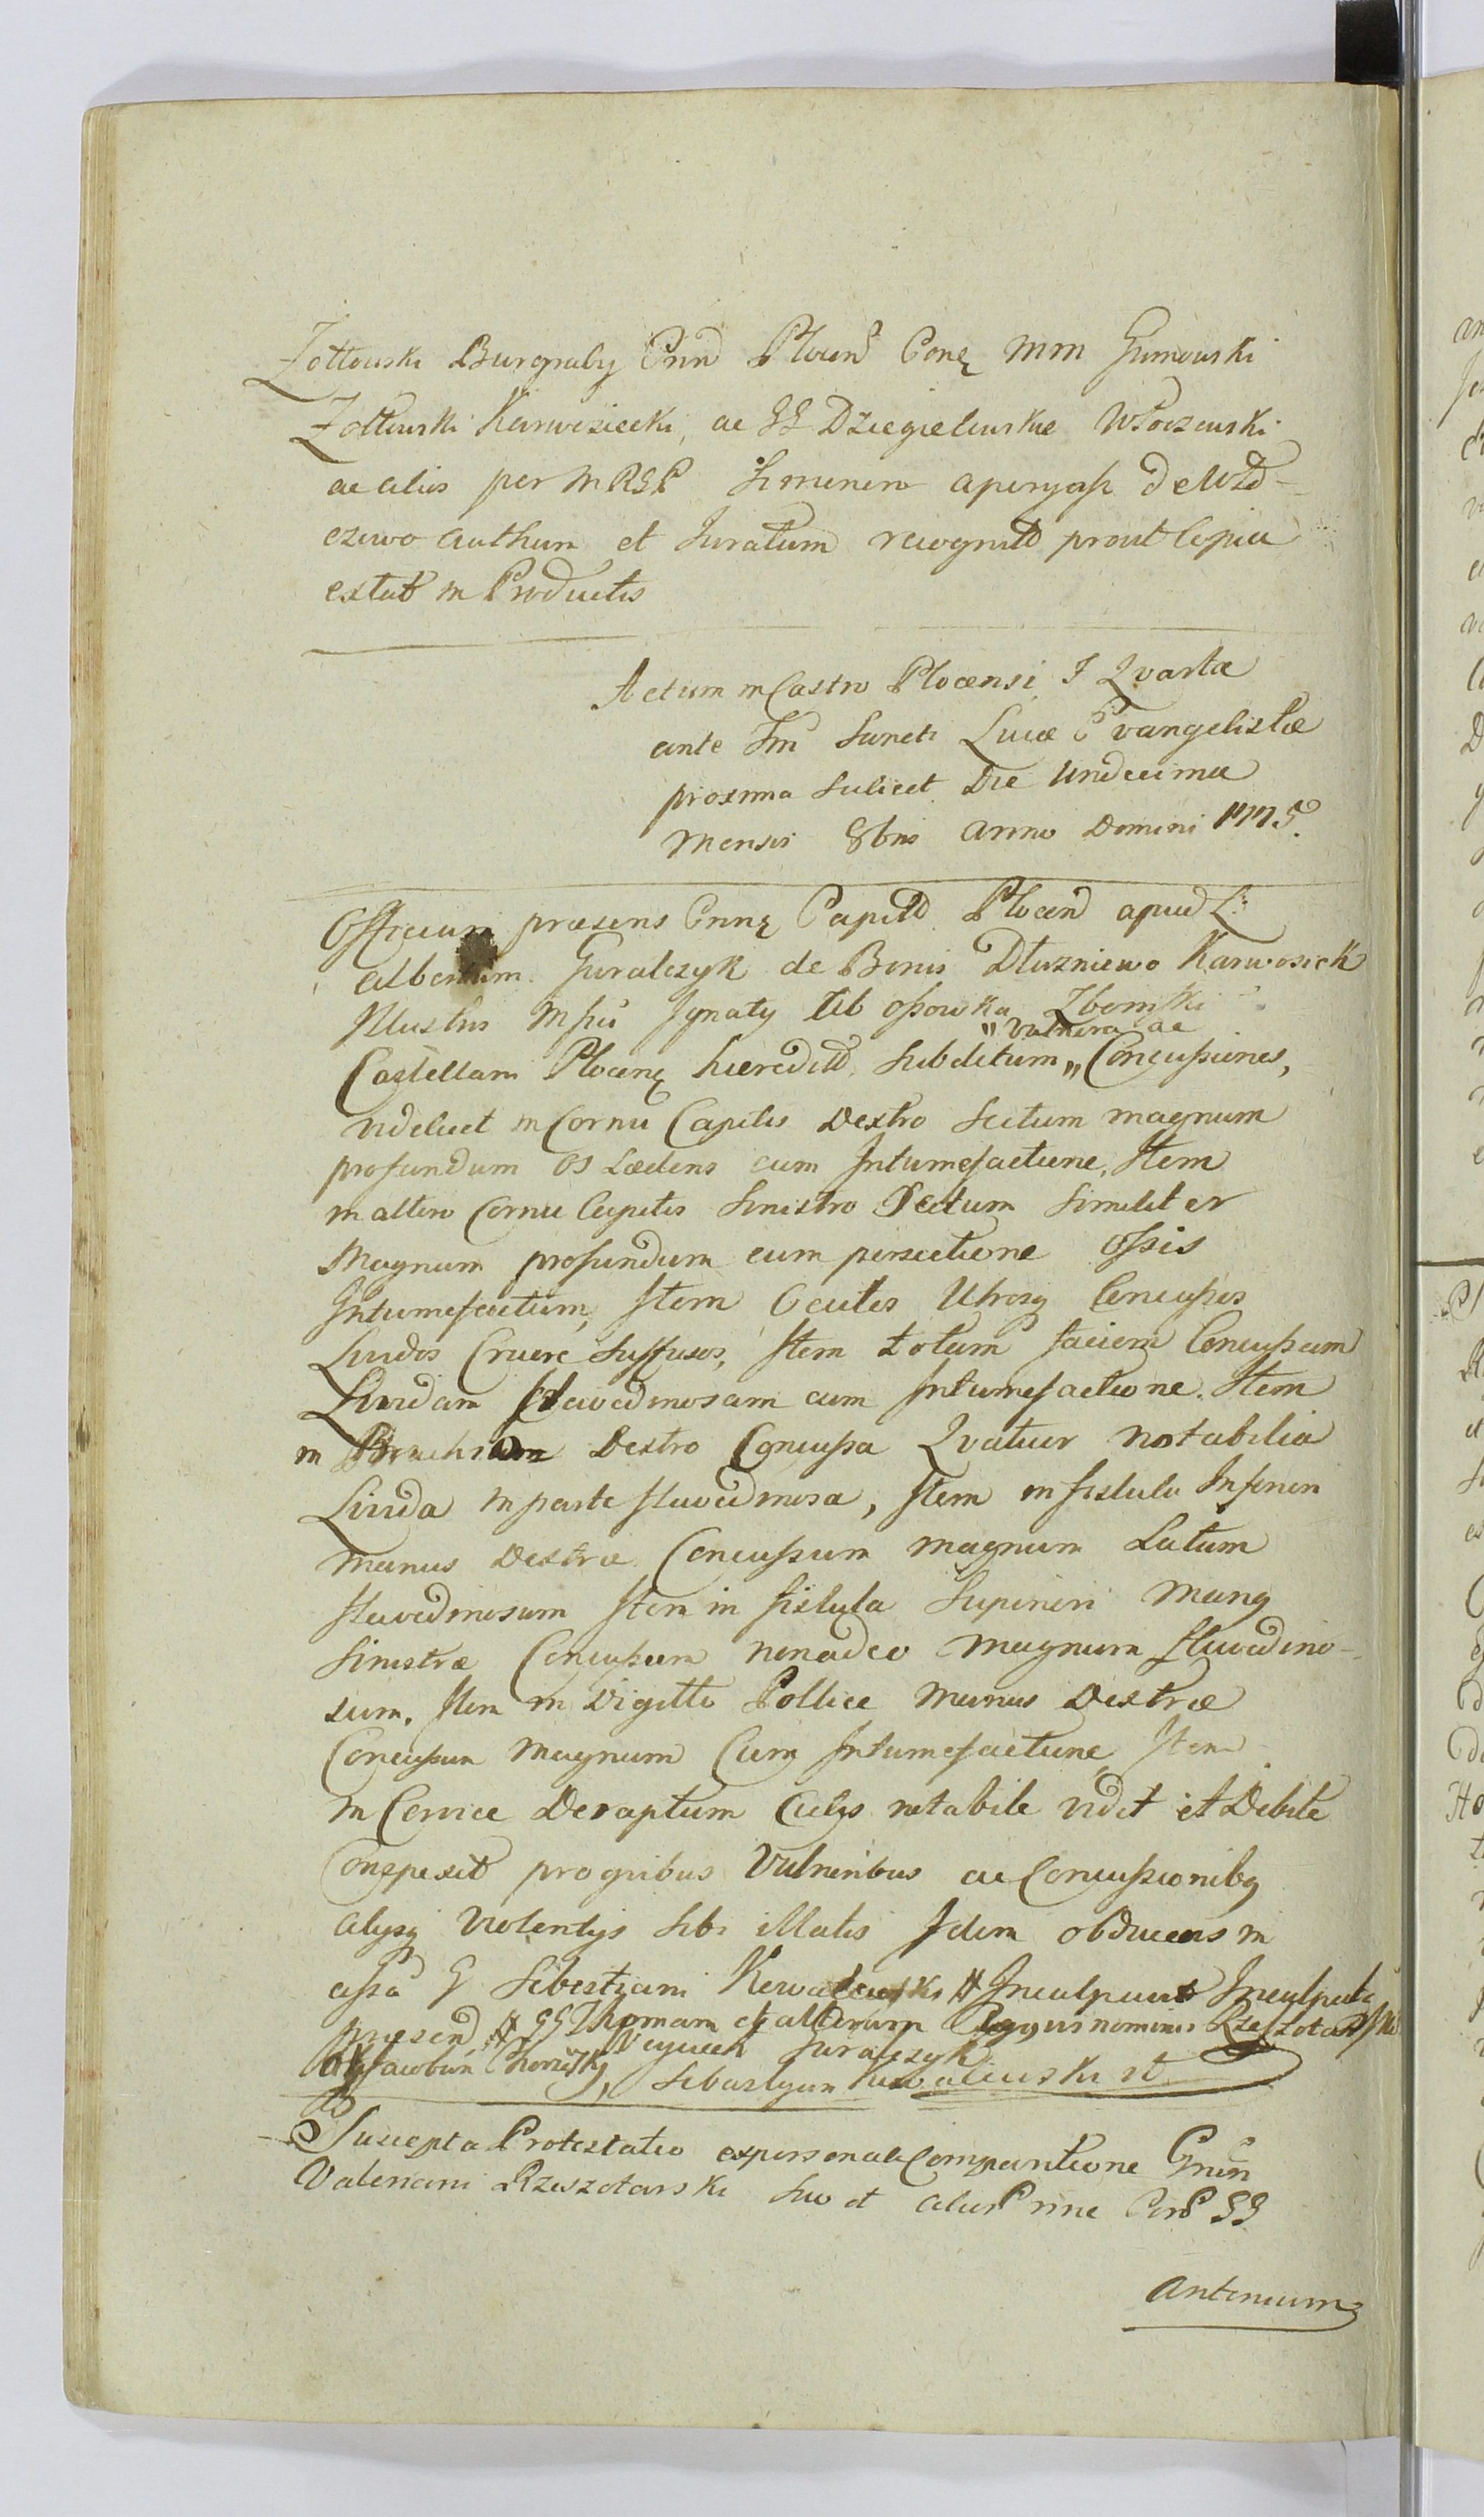 Żołtowski Burgraby Cnn Plocen Conq MM Gumowski
Żołtowski Karwosiecki, ac GG Dziegielewskie Włoczewski
ac alios per MRGP
czewo authum et Juratum recognitt prout Copia
extat in Productis
Actum in Castro Plocensi F Qvarta
ante Fm Sancti Lucæ Evangelistæ
proxima scilicet Die Undecima
Mensis 8bris Anno Domini 1775.
Officium præsens Cnnq Capitt Plocen apud L:
Albertum Guralczyk de Bonis Dłuzniewo Karwosiek
Illustris Mfci Ignaty ab Ossowka Zboinski
Castellani Plocenq hæreditt Subditum „ Concussiones,
„ Vulnera ac
videlicet in Cornu Capitis Dextro Sectum magnum
profundum Os Lædens cum Intumefactione, Item
in altero Cornu Capitis Sinistro Sectum Similiter
Magnum profundum cum persectione Ossis
Intumefactum, Item Oculos Utrosq Concussos
Lividos Cruore Suffusos, Item totam faciem Concussam
Lividam flavedinosam cum Intumefactione. Item
in Brachio Dextro Concussa Qvatuor notabilia
Livida in parte flavedinosa, Item in fistula Inferiori
manus Dextræ Concussum magnum Latum
flavedinosum Item in fistula Superiori Manq
Sinistræ Concussum nonadeo magnum flavedino-
sum. Item in Digitto Pollice Manus Dextræ
Concussum Magnum Cum Intumefactione, Item
in Cervice Deraptum Cutis notabile vidit et Debite
Conspexit pro quibus Vulneribus ac Concussionibq
alysq violentys Sibi illatis Idem obducens in
assa G Sebestiani Kowalewski # Inculpavit Inculpatq
præsend # GG Thomam et alterum Ignius nominis Rzeszotarski
Jacobum Woyciech Guralczyk
Sebastyan Kowalewski
Suscepta Protestatio ex personali Comparitione Gnen
Valeriani Rzeszotarski Suo et alior
Antonium